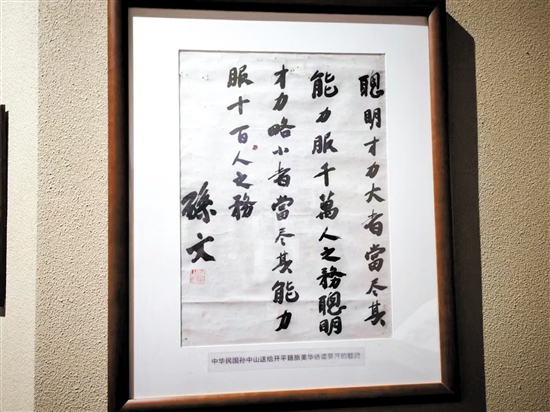 聰明才力大者當尽其
能力服千萬人之務聰明
才力略小者當尽其能力
服十百人之務
孫文
中华民国孙中山送给开平籍旅美华侨的题词